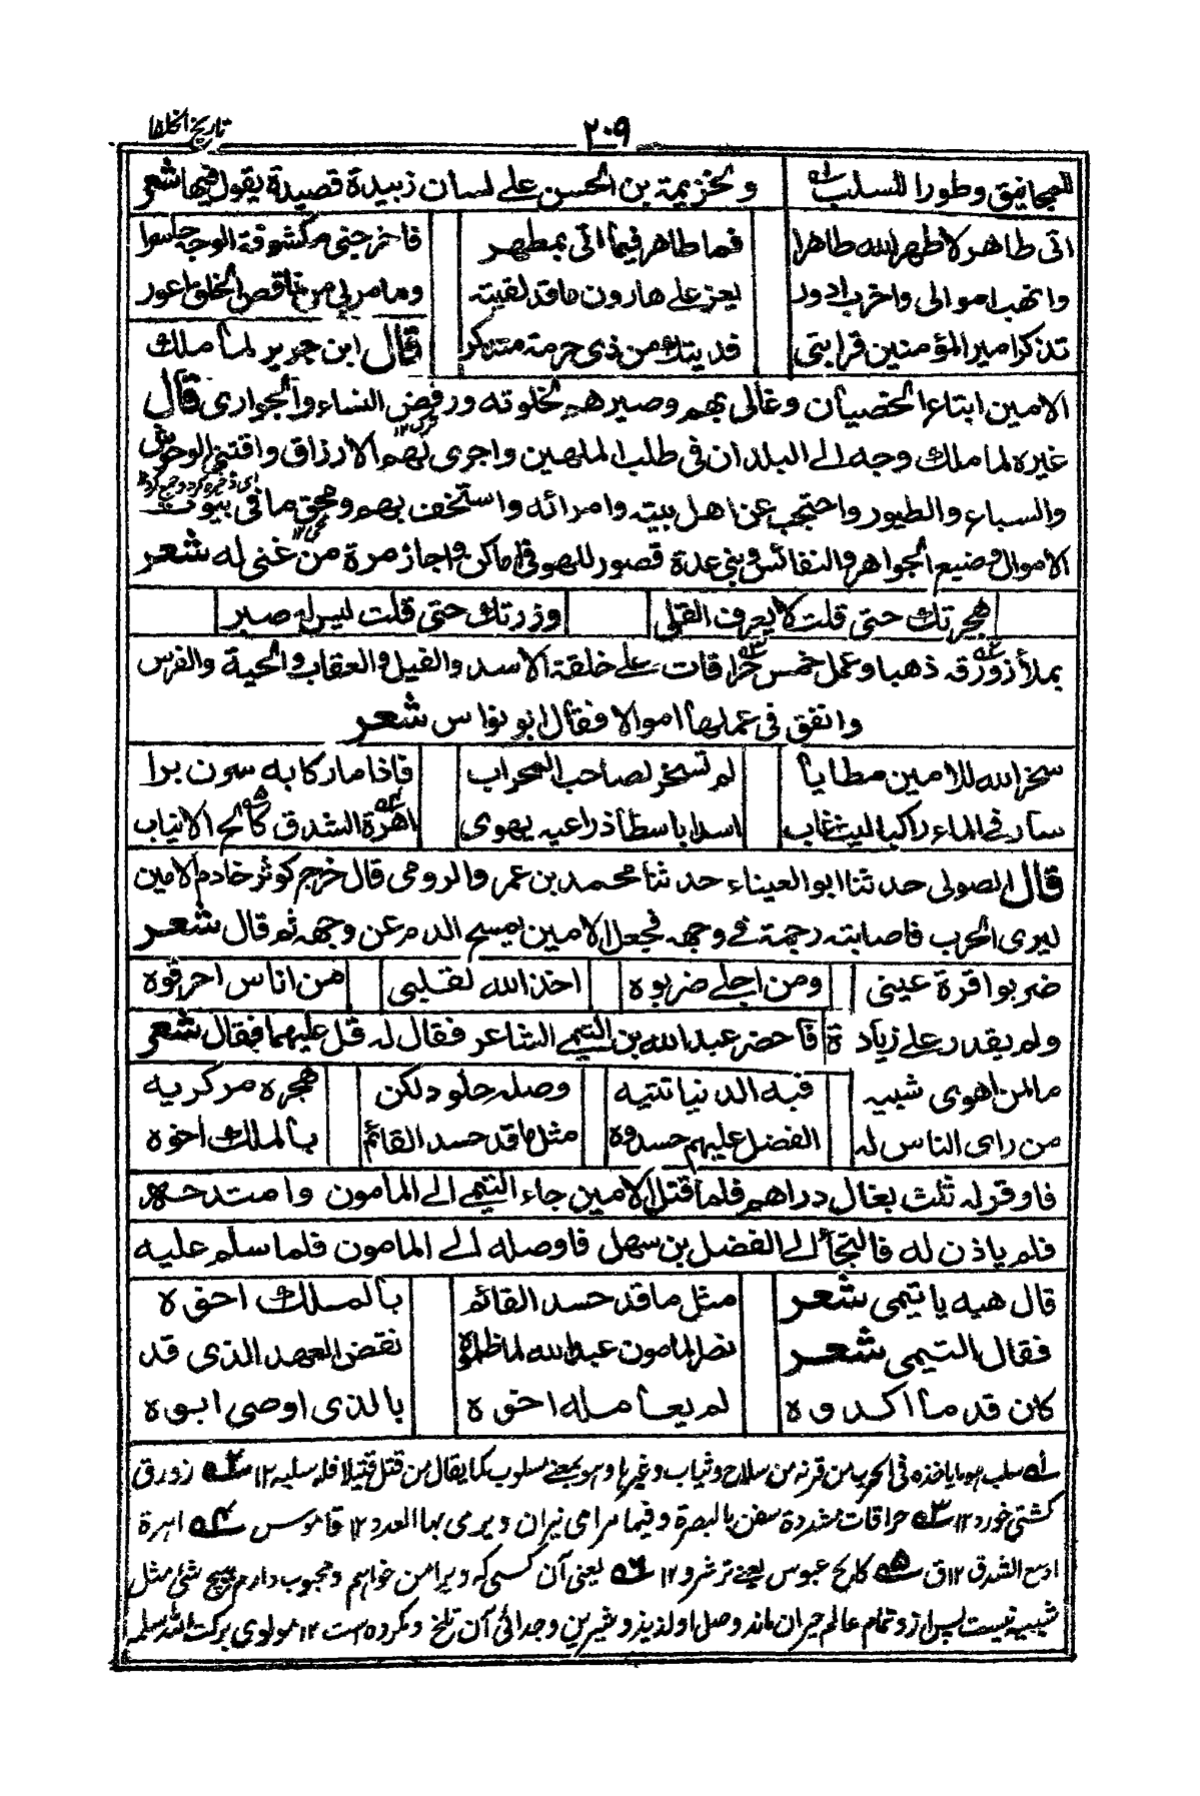 تاريخ الخلفا
٢٠٩
للمجانيق وطورا للسلب ولخزيمة بن الحسن على لسان زبيدة قصيدة يقول فيها شعر
اتى طاهر لا طهر الله طاهرا فما طاهر فيما اتى بمطهر فاخرجنى مكشوفة الوجه حاسرا
وانهب اموالى واخرب ادور يعز على هارون ما قد لقيته وما مر بى من ناقص الخلق اعور
تذكر امير المؤمنين قرابتى فديتك من ذى حرمة متذكر قال ابن جرير لما ملك
الامين ابتاع الخصيان وغالى بهم وصيرهم لخلوته ورفض النساء والجوارى قال
غيره لما ملك وجه الى البلدان فى طلب الملهين واجرى لهم الارزاق واقتنى الوحوش
والسباع والطيور واحتجب عن اهل بيته وامرائه واستخف بهم ومحق ما فى بيوت
الاموال وضيع الجواهر والنفائس وبنى عدة قصور للهو فى اماكن واجاز مرة من غنى له شعر
هجرتك حتى قلت لا يعرف القلى وزرتك حتى قلت ليس له صبر
بملأ زورقه ذهبا وعمل خمس حراقات على خلقة الاسد والفيل والعقاب والحية والفرس
وانفق فى عملها اموالا فقال ابو نواس شعر
سخر الله للامين مطايا لم تسخر لصاحب المحراب فاذا ما ركابه سرن برا
سار فى الماء راكبا ليث غاب اسدا باسطا ذراعيه يهوى اهرة الشدق كالح الانياب
قال الصولى حدثنا ابو العيناء حدثنا محمد بن عمرو الرومى قال خرج كوثر خادم الامين
ليرى الحرب فاصابته رجمة فى وجهه فجعل الامين يمسح الدم عن وجهه ثم قال شعر
ضربوا قرة عينى ومن اجلى ضربوه اخذ الله لقلبى من اناس احرقوه
ولم يقدر على زيادة فاحضر عبد الله بن التيمى الشاعر فقال له قل عليهما فقال شعر
ما لمن اهوى شبيه فبه الدنيا تتيه وصله حلو ولكن هجره مر كريه
من راى الناس له الفضل عليهم حسدوه مثل ما قد حسد القائم بالملك اخوه
فاوقر له ثلث بغال دراهم فلما قتل الامين جاء التيمى الى المامون وامتدحه
فلم ياذن له فالتجأ الى الفضل بن سهل فاوصله الى المامون فلما سلم عليه
قال هيه يا تيمى شعر مثل ما قد حسد القائم بالملك اخوه
فقال التيمى شعر نصر المامون عبد الله لما ظلموه نقض العهد الذى قد
كان قدما اكدوه لم يعامله اخوه بالذى اوصى ابوه
له سلب هو ما ياخذه فى الحرب من قرنه من سلاح وثياب وغيرها وهو بمعنى مسلوب كما يقال من قتل قتيلا فله سلبه ١٢ ٢ه زورق
كشتى خورد ١٢ ٣ه حراقات مشددة سفن بالبصرة وفيها مرامى نيران ويرمى بها العدو ١٢ قاموس ٤ه اهرة
اوسع الشدق ١٢ ق ٥ه كالح عبوس يعنى ترش رو ١٢ ٦ه يعنى آن كسى كه ويرا من خواهم ومحبوب دارم هيچ شئ مثل
شبيه نيست پس از و تمام عالم حيران ماند وصل او لذيذ و شيرين و جدائى آن تلخ و مكروه است ١٢ مولوى بركت الله سلمه